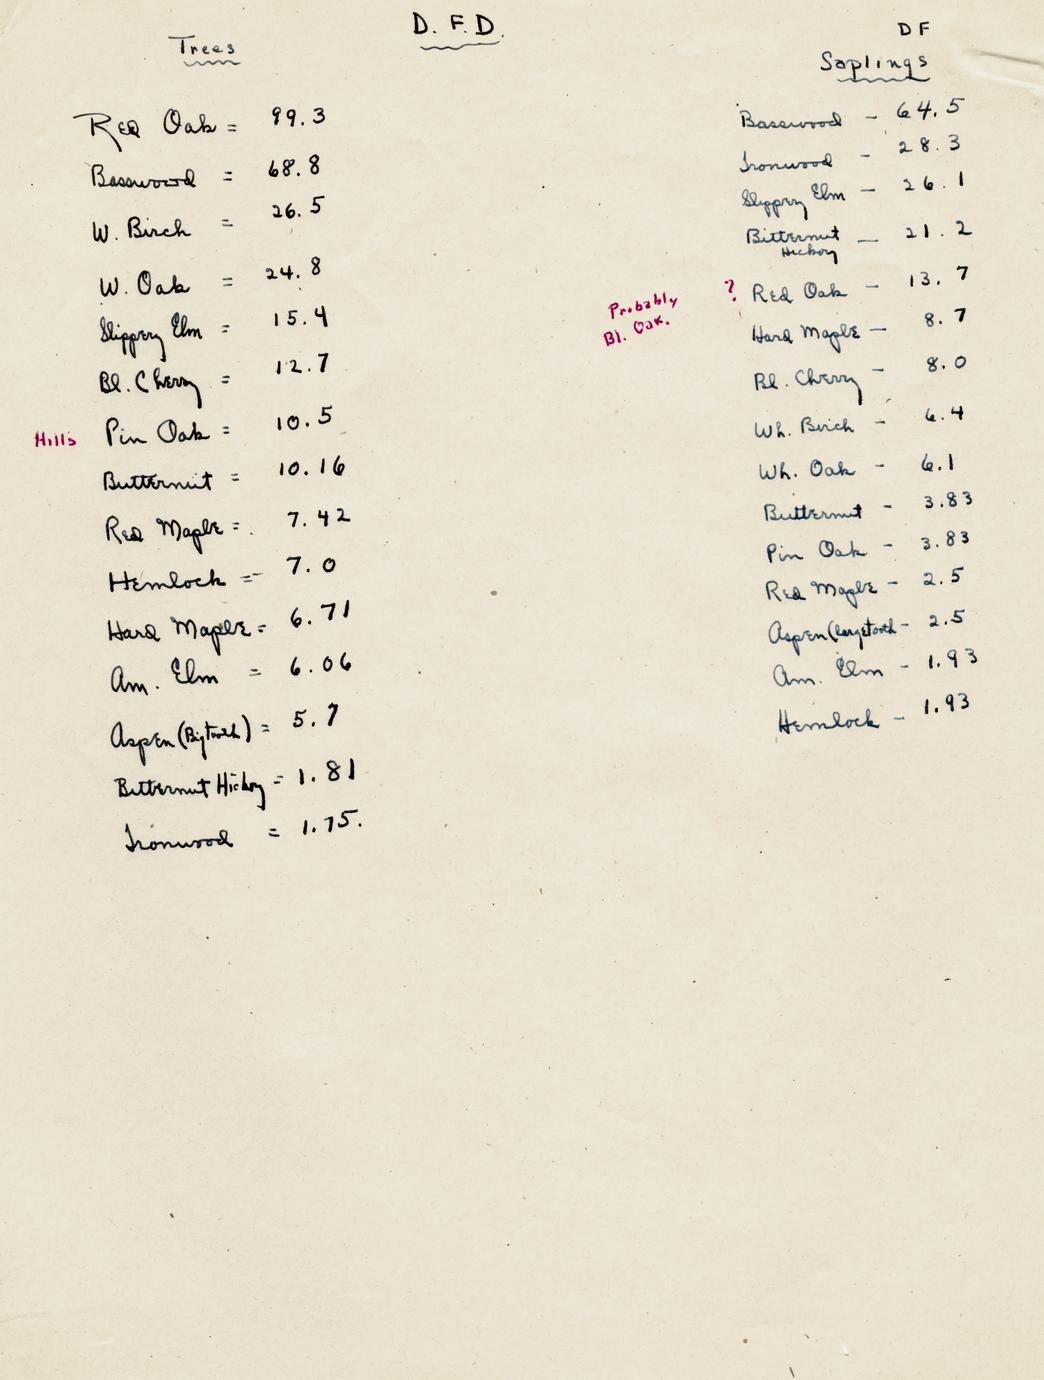 D. F. D.
Trees
Red Oak = 99.3
Basswood = 68.8
W. Birch = 26.5
W. Oak = 24.8
Slippery Elm = 15.4
Bl. Cherry = 12.7
Hill's Pin Oak = 10.5
Butternut = 10.16
Red Maple = 7.42
Hemlock = 7.0
Hard Maple = 6.71
Am. Elm = 6.06
Aspen (Bigtooth) = 5.7
Bitternut Hickory = 1.81
Ironwood = 1.75.
DF
Saplings
Basswood - 64.5
Ironwood - 28.3
Slippery Elm - 26.1
Bitternut - 21.2
Hickory
? Red Oak - 13.7
Probably
Bl. Oak.
Hard Maple - 8.7
Bl. Cherry - 8.0
Wh. Birch - 6.4
Wh. Oak - 6.1
Butternut - 3.83
Pin Oak - 3.83
Red Maple - 2.5
Aspen (largetooth - 2.5
Am. Elm - 1.93
Hemlock - 1.93